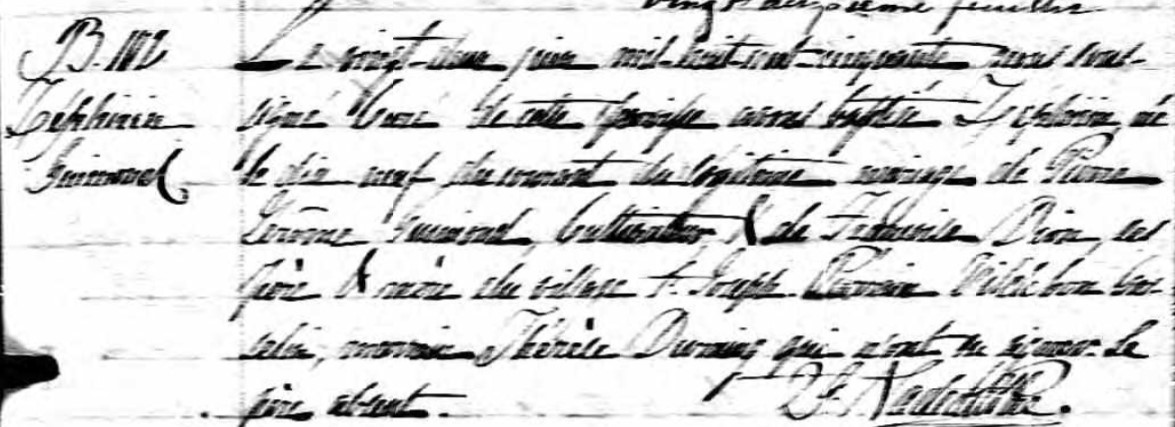 vingt deuxième feuillet
B. 112 Le vingt-deux juin mil-huit-cent-cinquante nous sous-
Zéphirin signé Curé de cette paroisse avons baptisé Zéphirin, né
Guimond le dix neuf du courant du légitime mariage de Pierre
Jérôme Guimond, Cultivateur & de Françoise Dion, ses
père & mère du village St. Joseph. Parrain
marraine Thérèse qui n'ont su signer. Le
père absent.